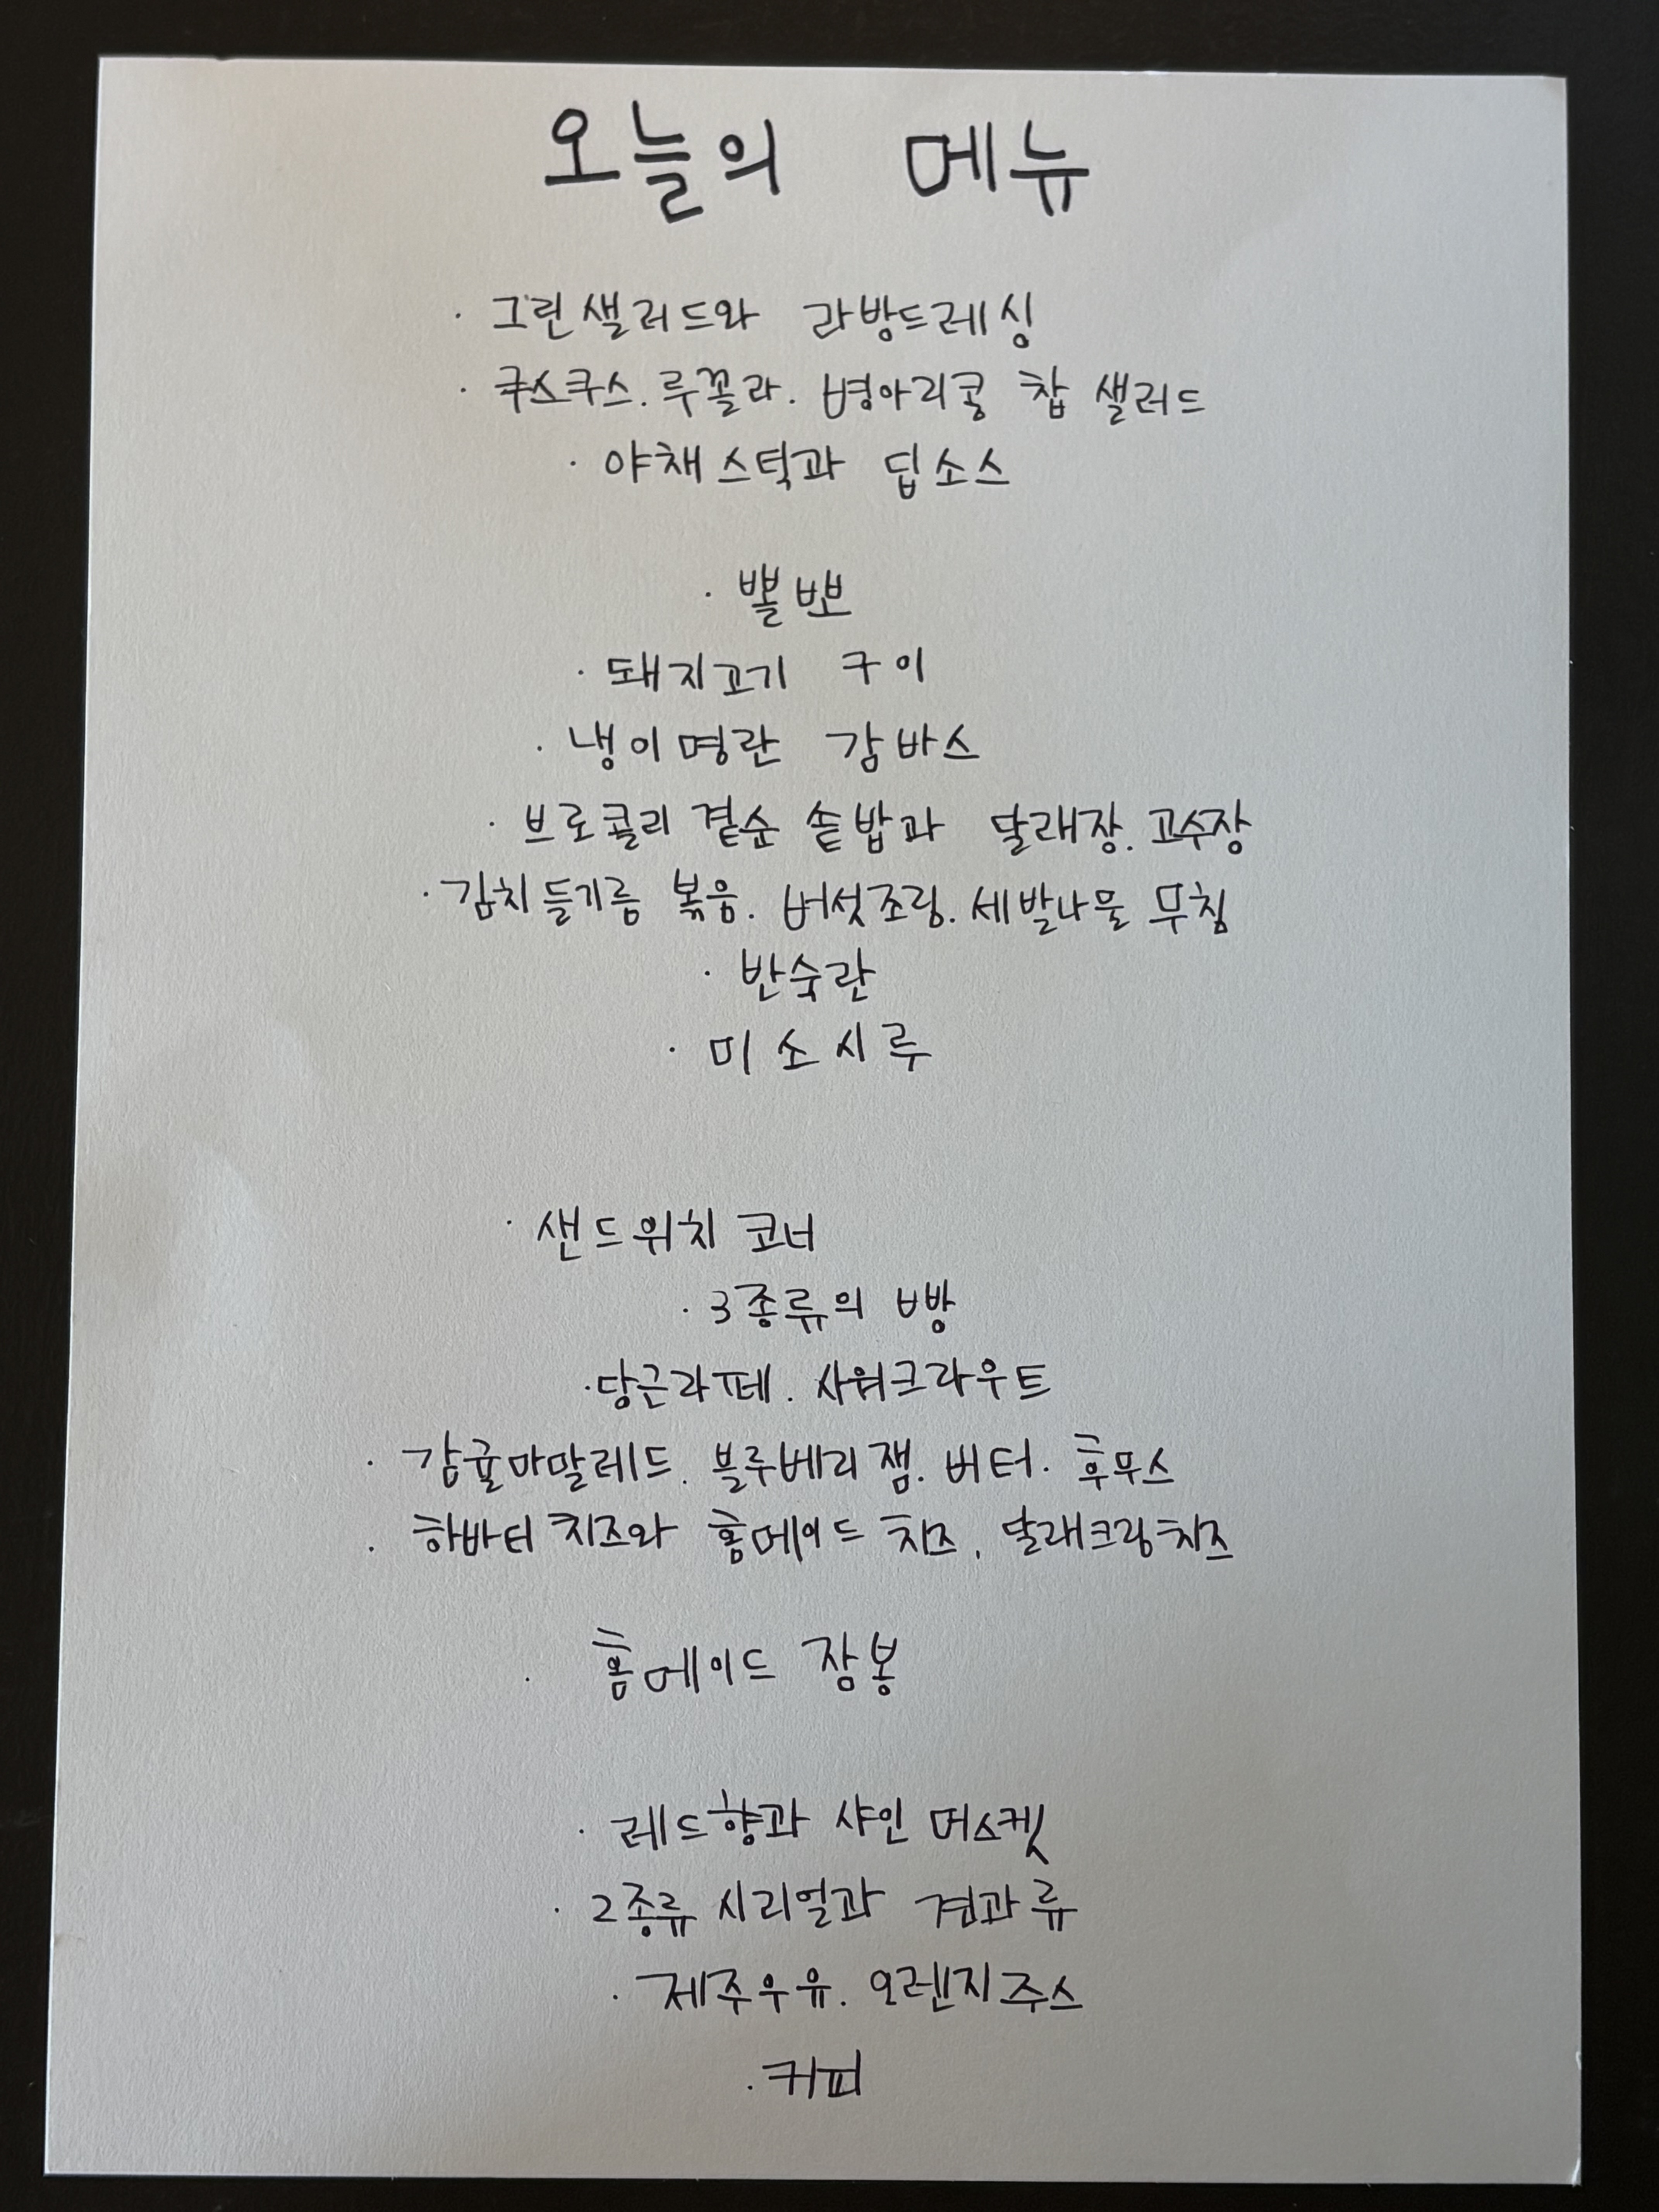 오늘의 메뉴
· 그린샐러드와 라방드레싱
· 쿠스쿠스. 루꼴라. 병아리콩 찹 샐러드
· 야채스틱과 딥소스
· 뽈뽀
· 돼지고기 구이
· 냉이명란 감바스
· 브로콜리 곁순 솥밥과 달래장. 고수장
· 김치들기름 볶음. 버섯조림. 세발나물 무침
· 반숙란
· 미소시루
· 샌드위치 코너
· 3종류의 빵
· 당근라페. 사워크라우트
· 감귤마말레드. 블루베리잼. 버터. 후무스
· 하바티치즈와 홈메이드 치즈. 달래크림치즈
· 홈메이드 잠봉
· 레드향과 샤인 머스켓
· 2종류 시리얼과 견과류
· 제주우유. 오렌지주스
· 커피